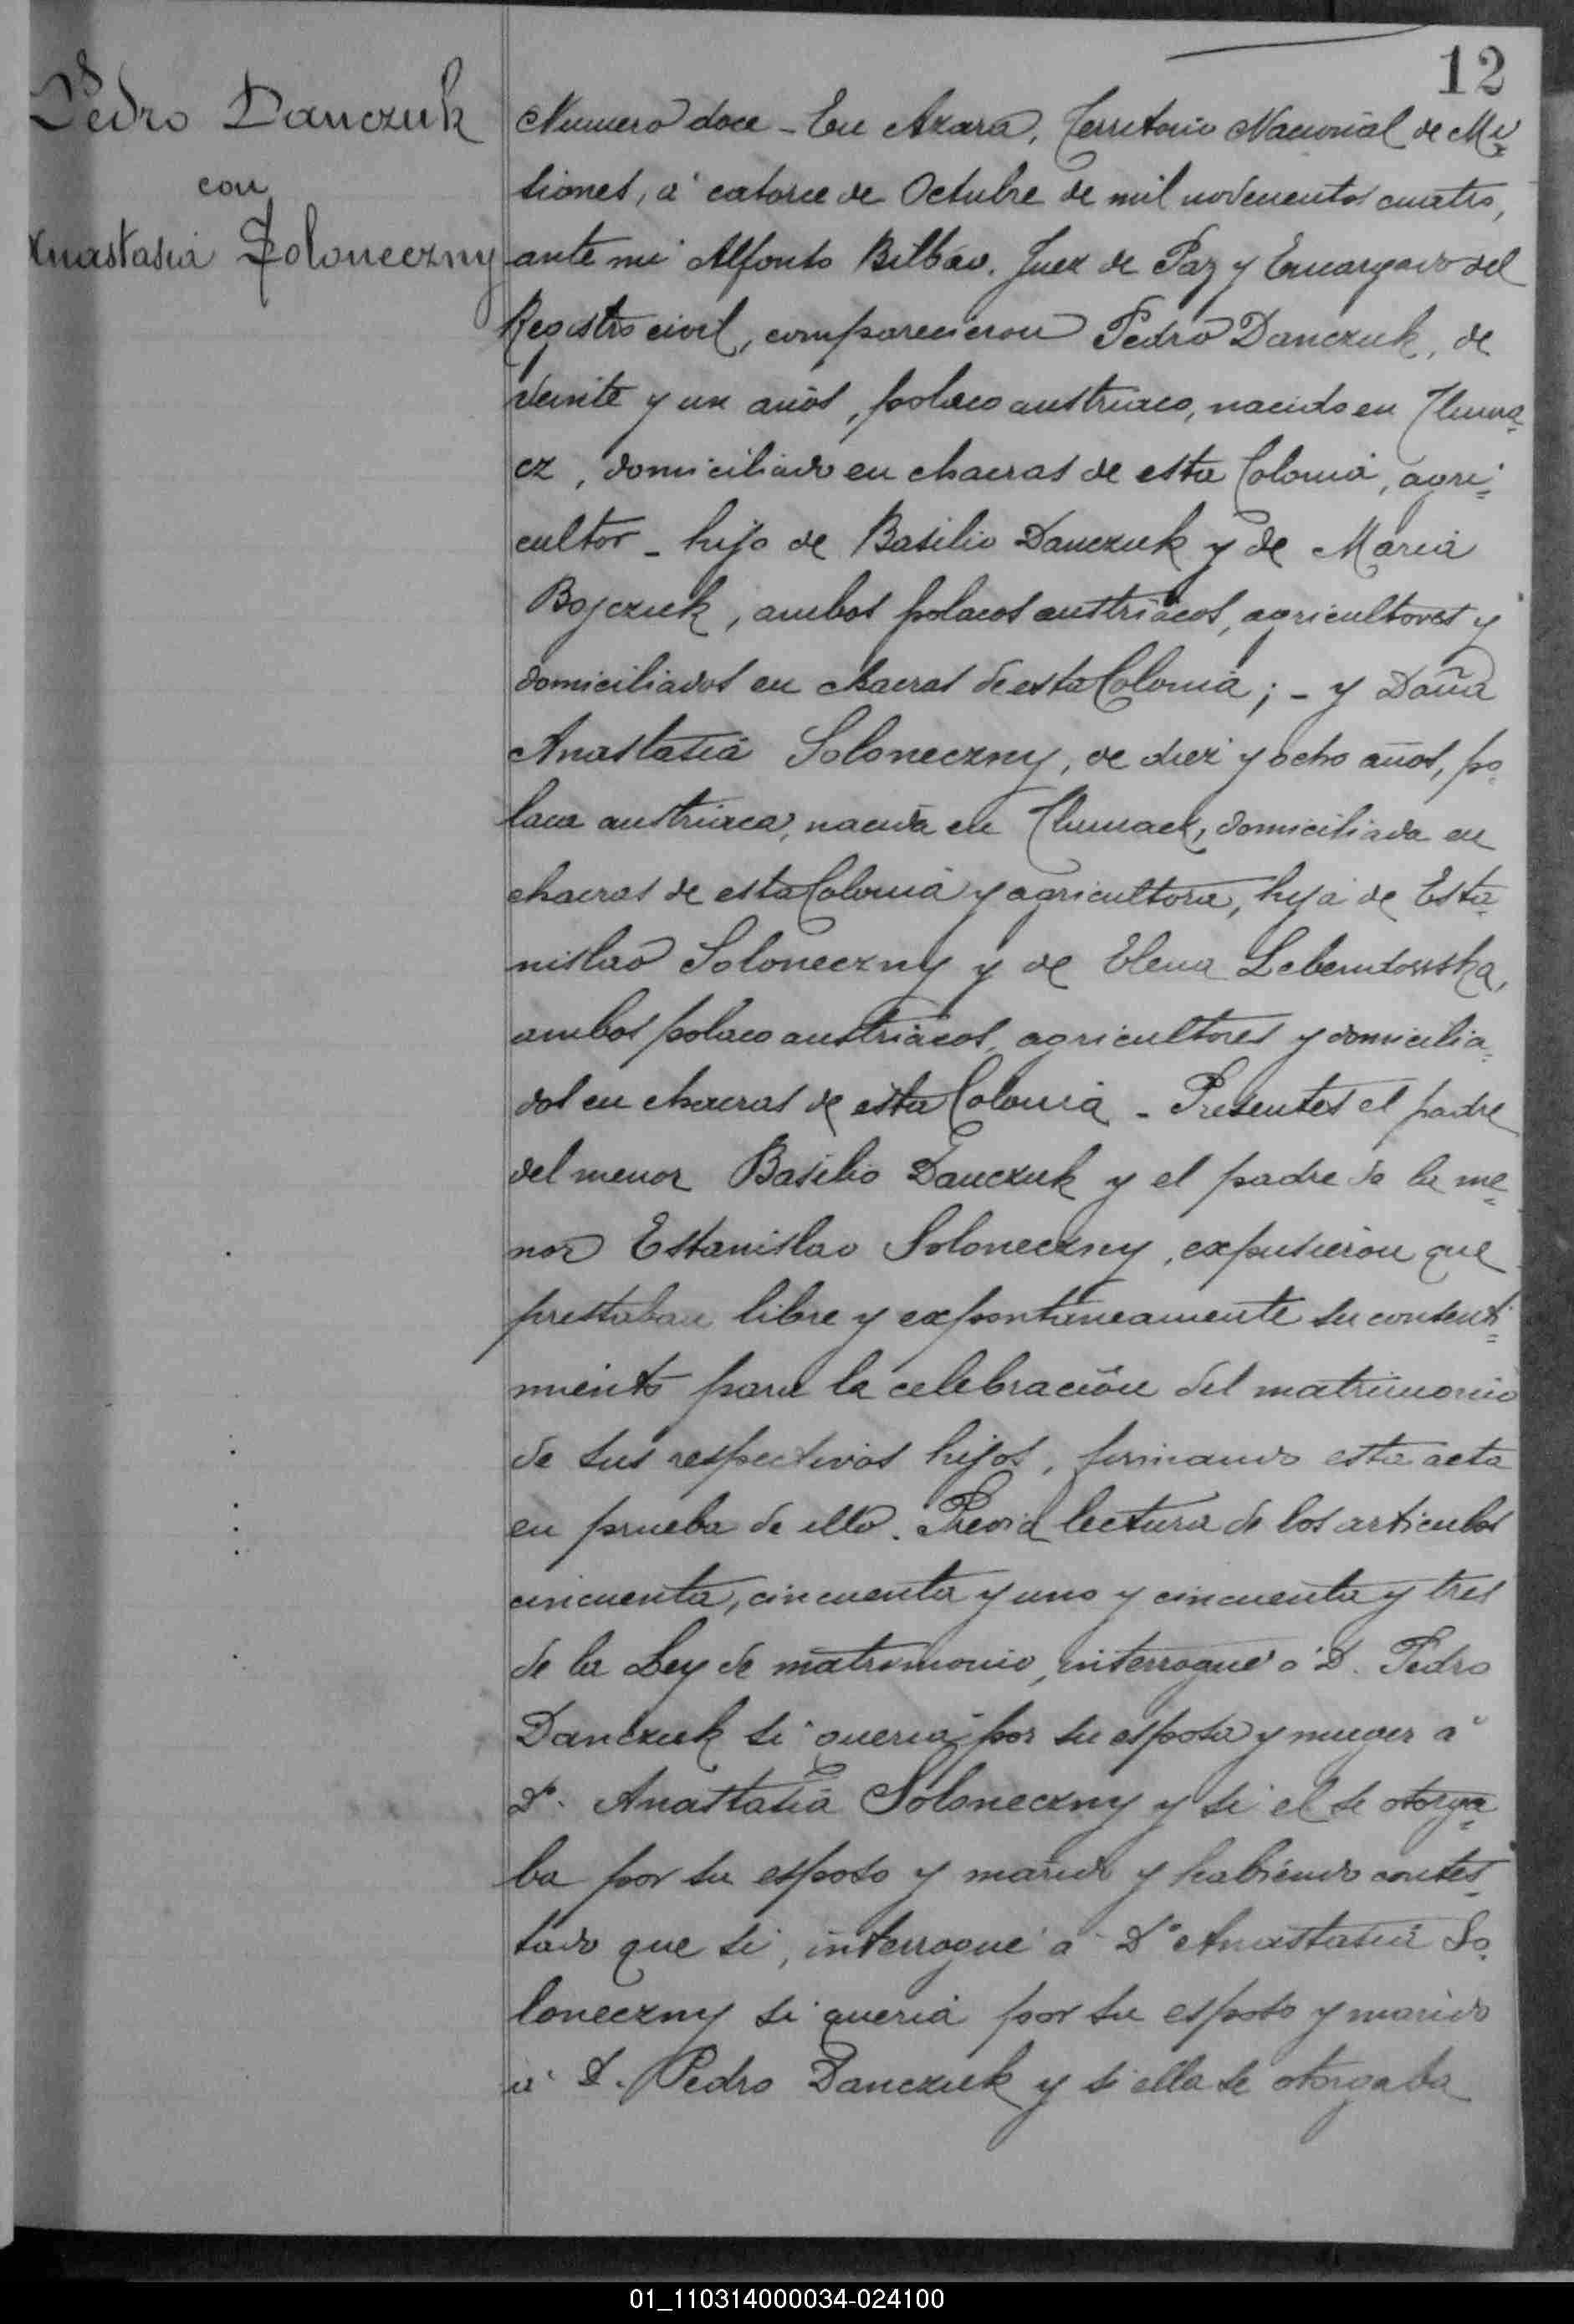 12
Pedro Danczuk
con
Anastasia Soloneczny
Numero doce - En Azara, Territorio Nacional de Mi=
siones, á catorce de Octubre de mil novecientos cuatro,
ante mi Alfonso Bilbao, Juez de Paz y Encargado del
Registro civil, comparecieron Pedro Danczuk, de
veinte y un años, polaco austriaco, nacido en Tluma=
cz, domiciliado en chacras de esta Colonia, agri=
cultor - hijo de Basilio Danczuk y de Maria
Bojczuk, ambos polacos austriacos, agricultores y
domiciliados en chacras de esta Colonia; - y Doña
Anastasia Soloneczny, de diez y ocho años, po=
laca austriaca, nacida en Tlumacz, domiciliada en
chacras de esta Colonia y agricultora, hija de Esta=
nislao Soloneczny y de Elena Leberndowska,
ambos polaco austriacos, agricultores y domicilia=
dos en chacras de esta Colonia - Presentes el padre
del menor Basilio Danczuk y el padre de la me=
nor Estanislao Soloneczny, expusieron que
prestaban libre y expontaneamente su consenti=
miento para la celebración del matrimonio
de sus respectivos hijos, firmando esta acta
en prueba de ello. Previa lectura de los articulos
cincuenta, cincuenta y uno y cincuenta y tres
de la Ley de matrimonio, interrogué á D. Pedro
Danczuk si queria por su esposa y muger á
Dª. Anastasia Soloneczny y si el se otorga=
ba por su esposo y marido y habiendo contes=
tado que si, interrogué á Dª Anastasia So=
loneczny si queria por su esposo y marido
á D. Pedro Danczuk y si ella se otorgaba
01_110314000034-024100